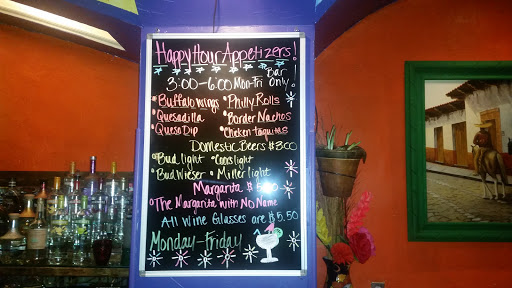 Happy Hour Appetizers!
3:00-6:00 Mon-Fri Bar Only!
Buffalo wings • Philly Rolls
Quesadilla • Border Nachos
Queso Dip • Chicken Taquitos
Domestic Beers $3.00
Bud light • Coors light
Budwieser • Miller light
Margarita $
The Margarita with No Name
All Wine Glasses are $5.50
Monday-Friday